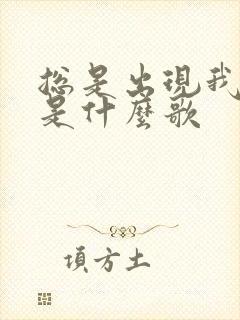 总是出现我
是什麼歌
項方土